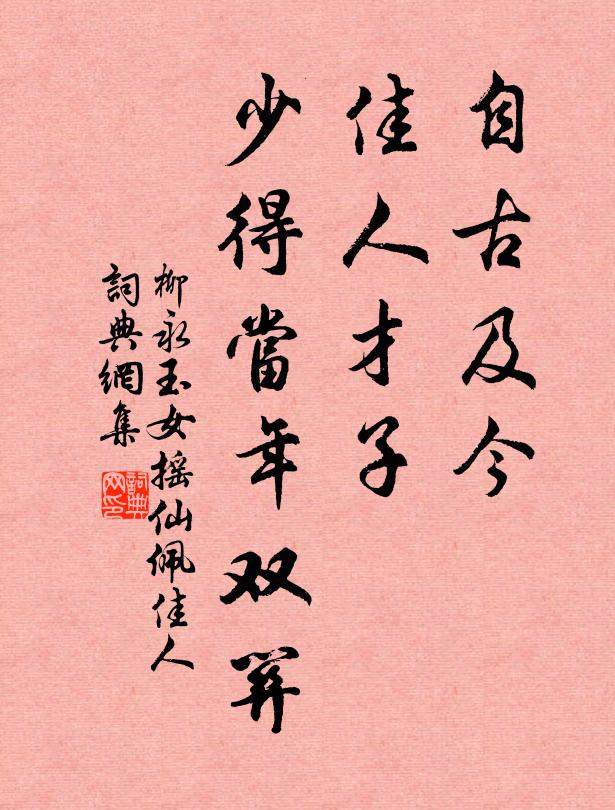 自古及今
佳人才子
少得當年双美
柳永玉女摇仙佩佳人
詞典網集
詞典网印